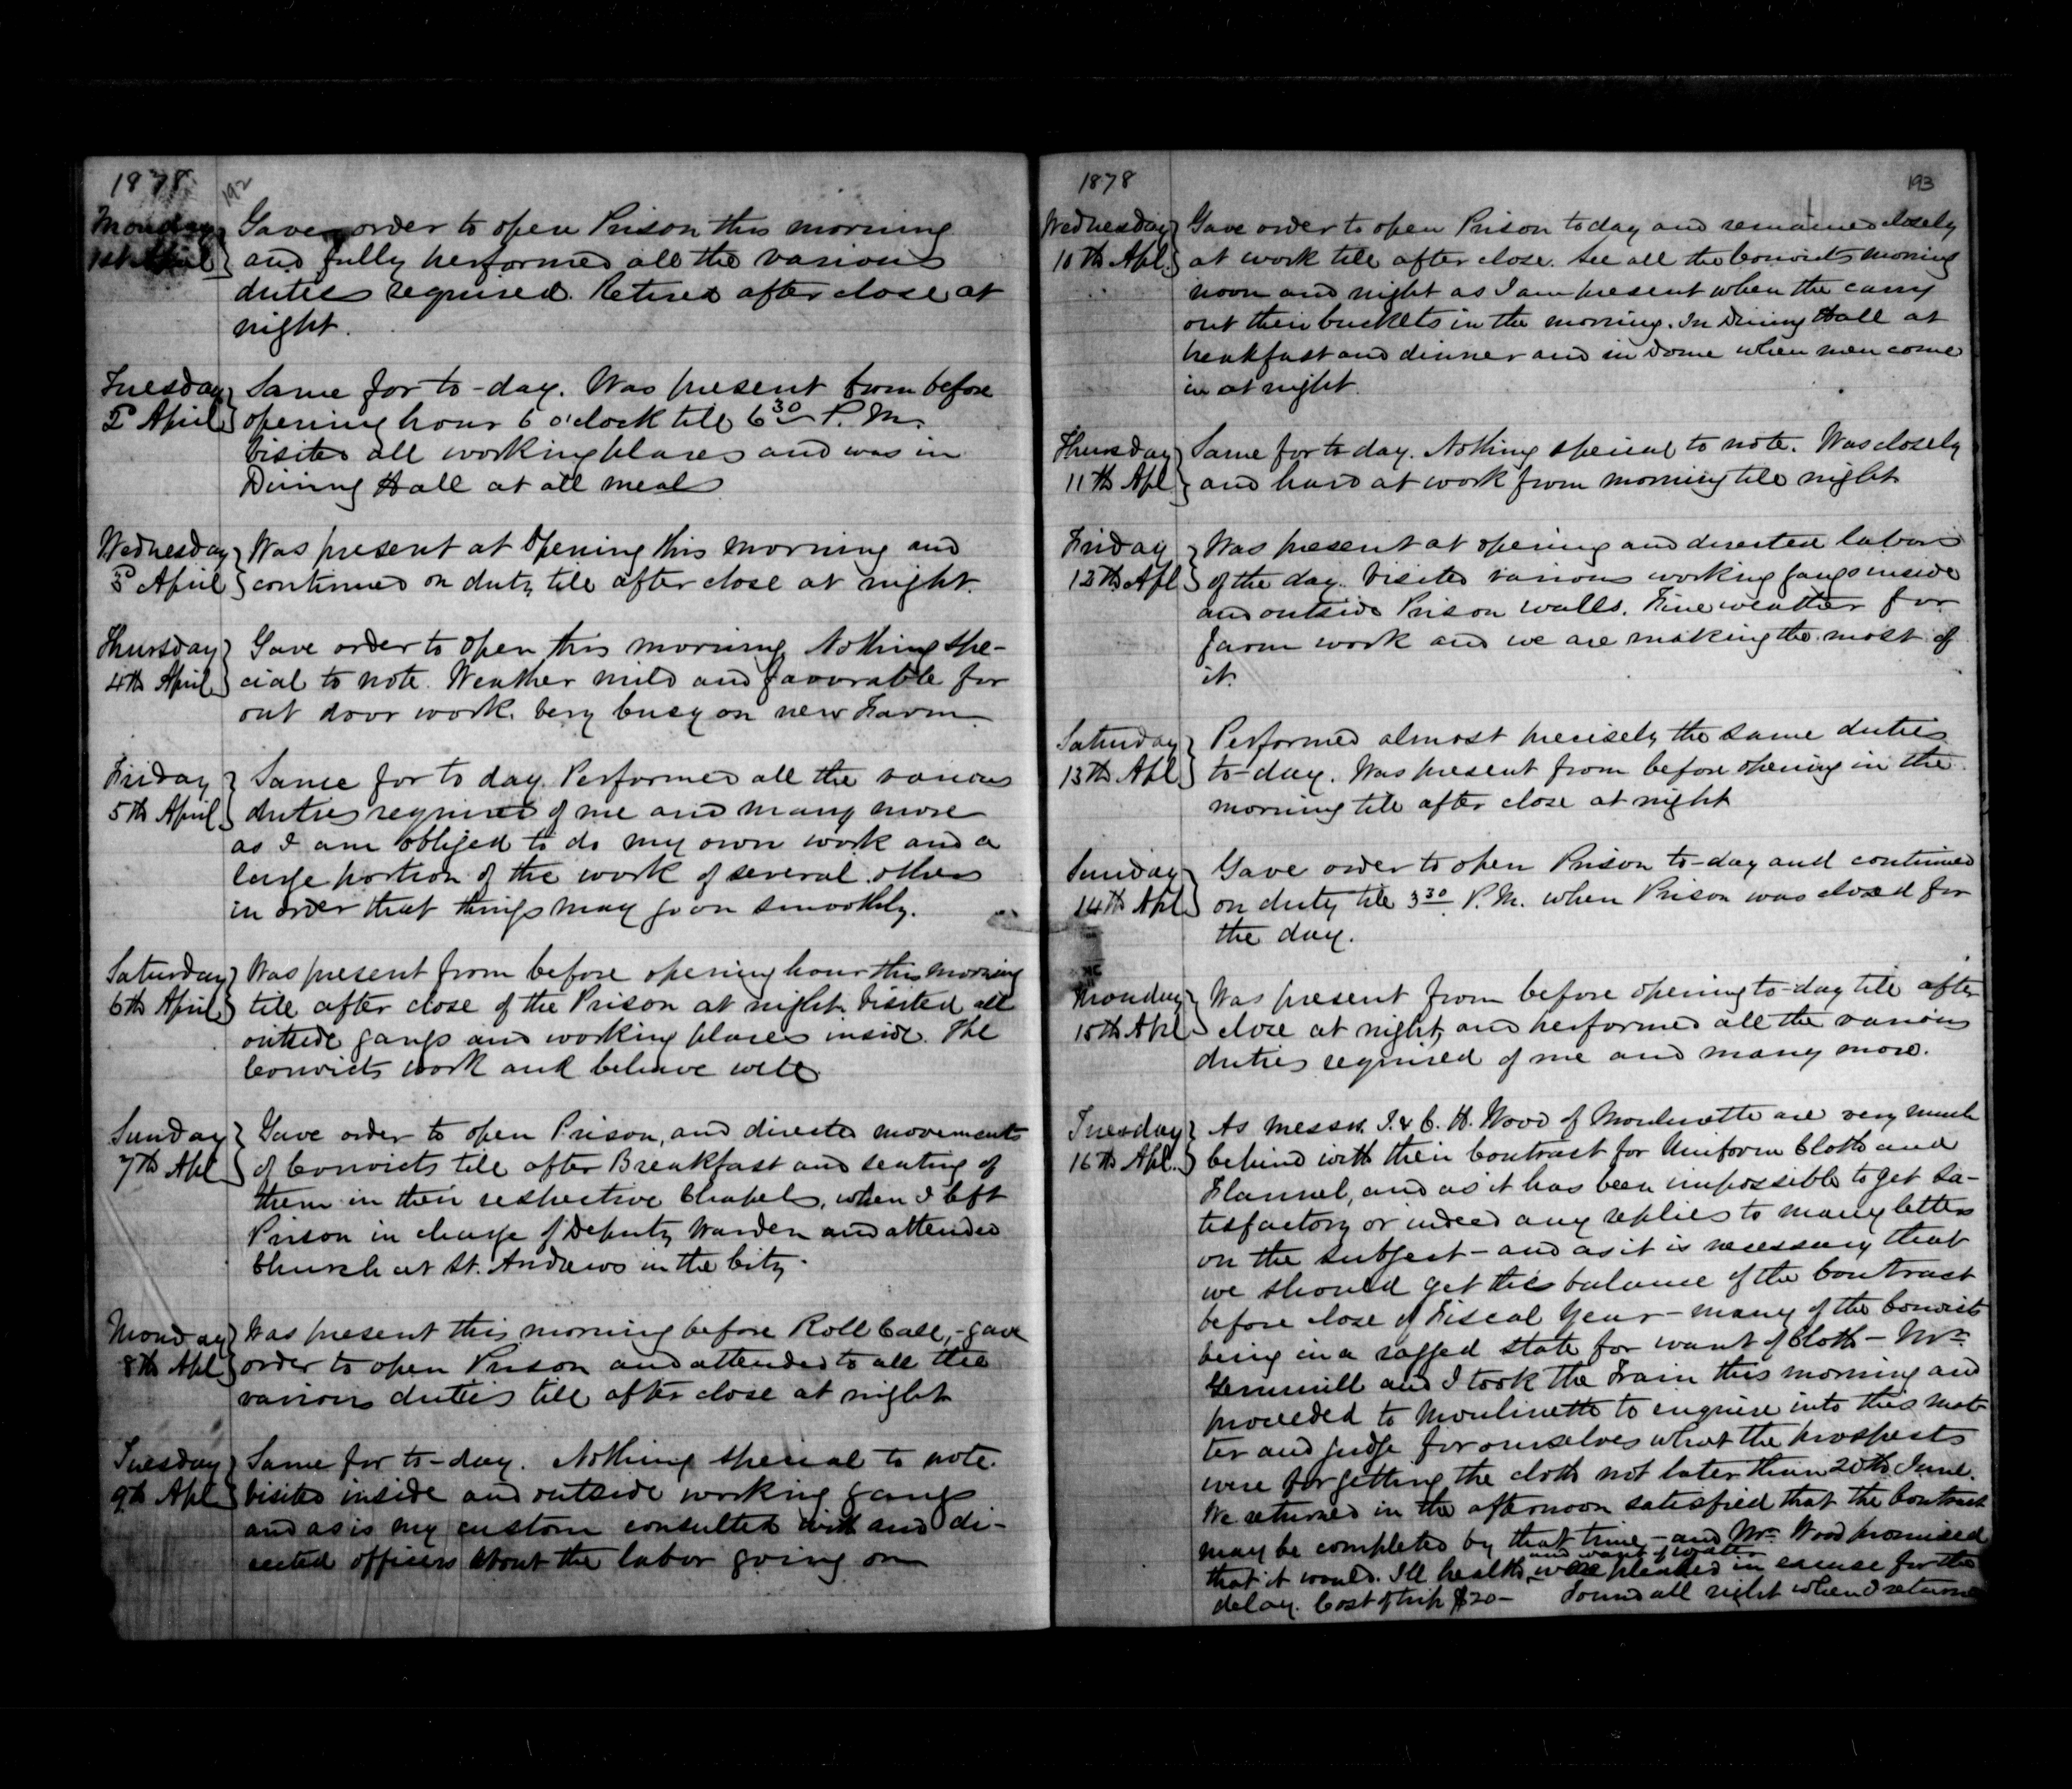 1878
192
Monday
1st April
Gave order to open Prison this morning
and fully performed all the various
duties required. Retired after close at
night.
Tuesday
2d April
Same for to-day. Was present from before
opening hour 6 o'clock till 6 30 P.M.
Visited all working places and was in
Dining Hall at all meals
Wednesday
3d April
Was present at Opening this morning and
continued on duty till after close at night.
Thursday
4th April
Gave order to open this morning Nothing spe-
cial to note. Weather mild and favorable for
out door work. Very busy on new Farm.
Friday
5th April
Same for to day. Performed all the various
duties required of me and many more
as I am obliged to do my own work and a
large portion of the work of several others
in order that things may go on smoothly.
Saturday
6th April
Was present from before opening hour this morning
till after close of the Prison at night. Visited all
outside gangs and working places inside. The
Convicts work and behave well
Sunday
7th Apl
Gave order to open Prison, and directed movements
of Convicts till after Breakfast and seating of
them in their respective Chapels, when I left
Prison in charge of Deputy Warden and attended
Church at St. Andrews in the City.
Monday
8th Apl
Was present this morning before Roll Call, - gave
order to open Prison and attended to all the
various duties till after close at night
Tuesday
9th Apl
Same for to-day. Nothing special to note.
Visited inside and outside working gangs
and as is my custom consulted with and di-
rected officers about the labor going on
1878
193
Wednesday
10th Apl.
Gave order to open Prison today and remained closely
at work till after close. See all the Convicts morning
noon and night as I am present when the carry
out their buckets in the morning. In Dining Hall at
breakfast and dinner and in Dome when men come
in at night.
Thursday
11th Apl
Same for to day. Nothing special to note. Was closely
and hard at work from morning till night
Friday
12th Apl
Was present at opening and directed labors
of the day. Visited various working gangs inside
and outside Prison walls. Fine weather for
farm work and we are making the most of
it.
Saturday
13th Apl
Performed almost precisely the same duties
to-day. Was present from before opening in the
morning till after close at night
Sunday
14th Apl.
Gave order to open Prison to-day and continued
on duty till 3 30 P.M. when Prison was closed for
the day.
Monday
15th Apl
Was present from before opening to-day till after
close at night, and performed all the various
duties required of me and many more.
Tuesday
16th Apl.
As Messrs. I. & C. H. Wood of Moulinette are very much
behind with their Contract for Uniform Cloth and
Flannel, and as it has been impossible to get sa-
tisfactory or indeed any replies to many letters
on the subject - and as it is necessary that
we should get this balance of the Contract
before close of Fiscal Year - many of the Convicts
being in a ragged state for want of Cloth - Mr.
Gemmill and I took the Train this morning and
proceeded to Moulinette to enquire into this mat-
ter and judge for ourselves what the prospects
were for getting the cloth not later than 20th June.
We returned in the afternoon satisfied that the Contract
may be completed by that time - and Mr. Wood promised
that it would. Ill health, and want of water were pleaded in excuse for the
delay. Cost of trip $20 - Found all right when I returned